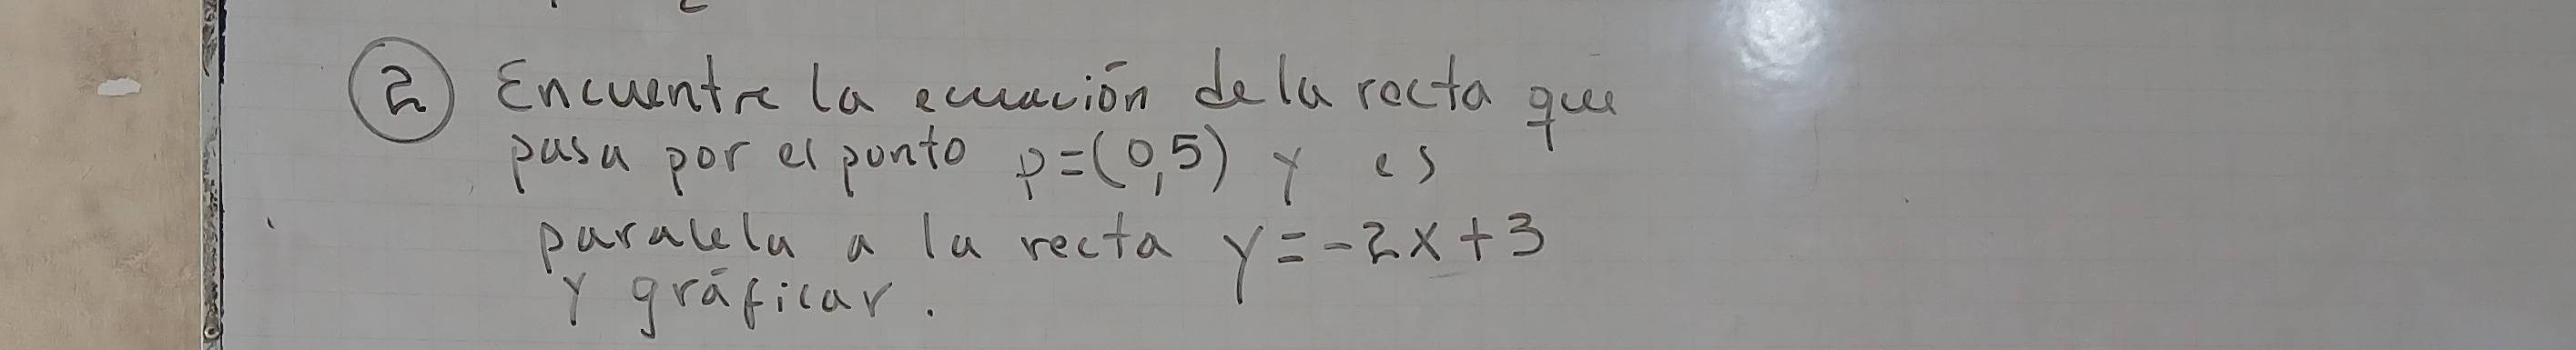 ② Encuentre la ecuación de la recta que
pasa por el punto p=(0,5) y es
paralela a la recta y=-2x+3
y gráficar.